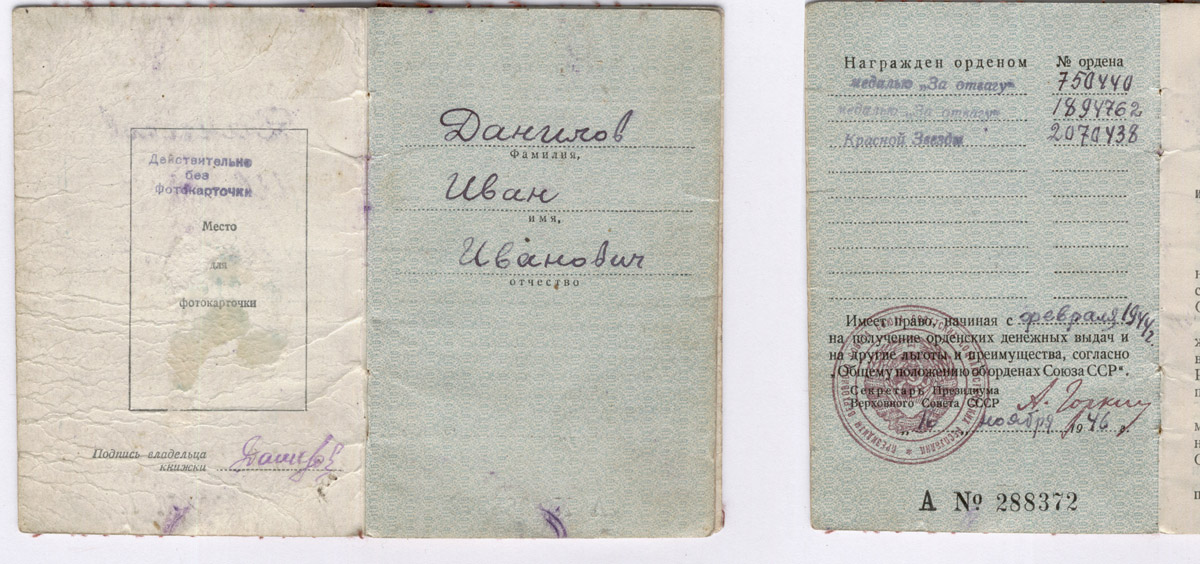 Действительно
без
фотокарточки
Место
для
фотокарточки
Подпись владельца
книжки
Данилов
Фамилия,
Иван
имя,
Иванович
отчество
Награжден орденом № ордена
медалью „За отвагу“ 750440
медалью „За отвагу“ 1894762
Красной Звезды 2070438
Имеет право, начиная с февраля 1944 г.
на получение орденских денежных выдач и
на другие льготы и преимущества, согласно
„Общему положению об орденах Союза ССР“.
Секретарь Президиума
Верховного Совета СССР А. Горкин
„16 ноября 1946 г.
А № 288372